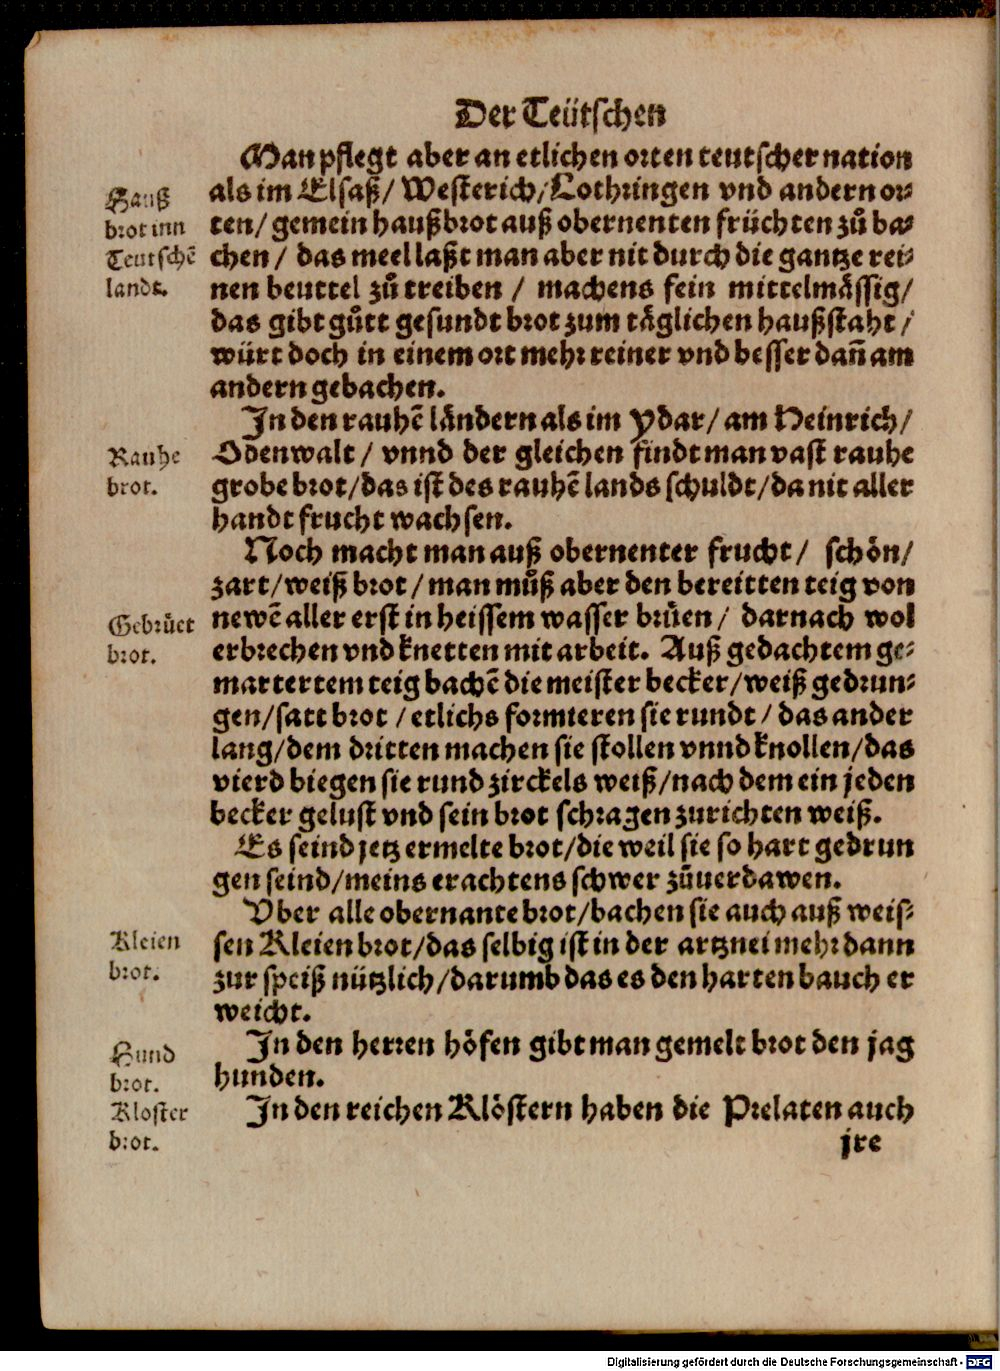 Der Teütschen
Man pflegt aber an etlichen orten teutscher nation
als im Elsaß/ Westerich/ Lothringen vnd andern or⸗
ten/ gemein haußbrot auß obernenten früchten zů ba⸗
chen/ das meel laßt man aber nit durch die gantze rei⸗
nen beuttel zů treiben / machens fein mittelmåssig/
das gibt gůtt gesundt brot zum tåglichen haußstaht /
würt doch in einem ort mehr reiner vnd besser dañ am
andern gebachen.
Hauß
brot inn
Teutschẽ
landt.
In den rauhẽ låndern als im Ydar/ am Heinrich/
Odenwalt / vnnd der gleichen findt man vast rauhe
grobe brot/das ist des rauhẽ lands schuldt/da nit aller
handt frucht wachsen.
Rauhe
brot.
Noch macht man auß obernenter frucht / schön/
zart/weiß brot / man můß aber den bereitten teig von
newẽ aller erst in heissem wasser brůen / darnach wol
erbrechen vnd knetten mit arbeit. Auß gedachtem ge⸗
martertem teig bachẽ die meister becker/weiß gedrun⸗
gen/satt brot / etlichs formieren sie rundt / das ander
lang/dem dritten machen sie stollen vnnd knollen/das
vierd biegen sie rund zirckels weiß/nach dem ein jeden
becker gelust vnd sein brot schragen zurichten weiß.
Gebrůet
brot.
Es seind jetz ermelte brot/die weil sie so hart gedrun
gen seind/meins erachtens schwer zůuerdawen.
Vber alle obernante brot/bachen sie auch auß weis⸗
sen Kleien brot/das selbig ist in der artznei mehr dann
zur speiß nützlich/darumb das es den harten bauch er
weicht.
Kleien
brot.
In den herren höfen gibt man gemelt brot den jag
hunden.
Hund
brot.
In den reichen Klöstern haben die Prelaten auch
Kloster
brot.
jre
Digitalisierung gefördert durch die Deutsche Forschungsgemeinschaft - DFG